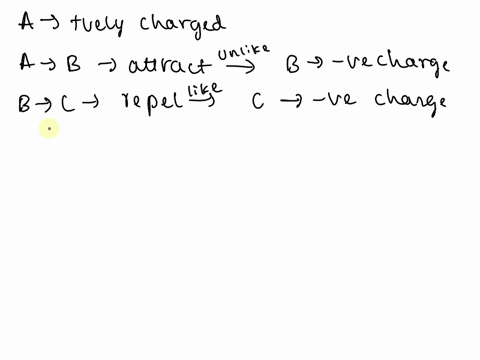 A → +vely charged
A → B → attract unlike → B → -ve charge
B → C → repel like → C → -ve charge